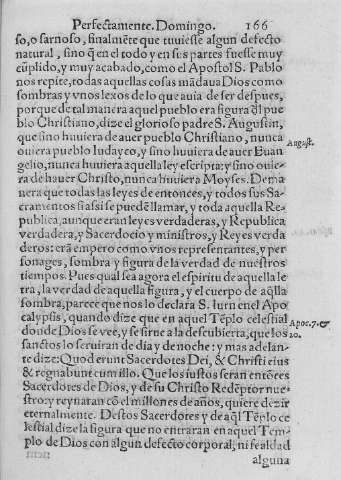 Perfectamente. Domingo. 166
so, o sarnoso, finalmẽte que tuuiesse algun defecto
natural, sino q̃ en el todo y en sus partes fuesse muy
cũplido, y muy acabado, como el Apostol S. Pablo
nos repite, todas aquellas cosas mãdaua Dios como
sombras y vnos lexos de lo que auia de ser despues,
porque de tal manera aquel pueblo era figura ðl pue
blo Christiano, dize el glorioso padre S. Augustin,
que sino huuiera de auer pueblo Christiano, nunca
August.
ouiera pueblo Iudayco, y sino huuiera de auer Euan
gelio, nunca huuiera aquella ley escripta: y sino ouie-
ra de hauer Christo, nunca huuiera Moyses. De ma
nera que todas las leyes de entonces, y todos sus Sa-
cramentos si assi se puedẽ llamar, y toda aquella Re-
publica, aunque eran leyes verdaderas, y Republica
verdadera, y Sacerdocio y ministros, y Reyes verda
deros: erã empero como vnos representantes, y per
sonages, sombra y figura de la verdad de nuestros
tiempos. Pues qual sea agora el espiritu de aquella le
tra, la verdad de aquella figura, y el cuerpo de aq̃lla
sombra, parece que nos lo declara S. Iuan en el Apo
calypsis, quando dize que en aquel Tẽplo celestial
Apoc. 7. &
donde Dios se vee, y se sirue a la descubierta, que los
20.
sanctos lo seruiran de dia y de noche: y mas adelan-
te dize: Quod erunt Sacerdotes Dei, & Christi eius
& regnabunt cum illo. Que los iustos seran entõces
Sacerdotes de Dios, y de su Christo Redẽptor nue-
stro: y reynaran cõ el millones de años, quiere dezir
eternalmente. Destos Sacerdotes y de aq̃l Tẽplo ce
lestial dize la figura que no entraran en aquel Tem-
plo de Dios con algun defecto corporal, ni fealdad
alguna